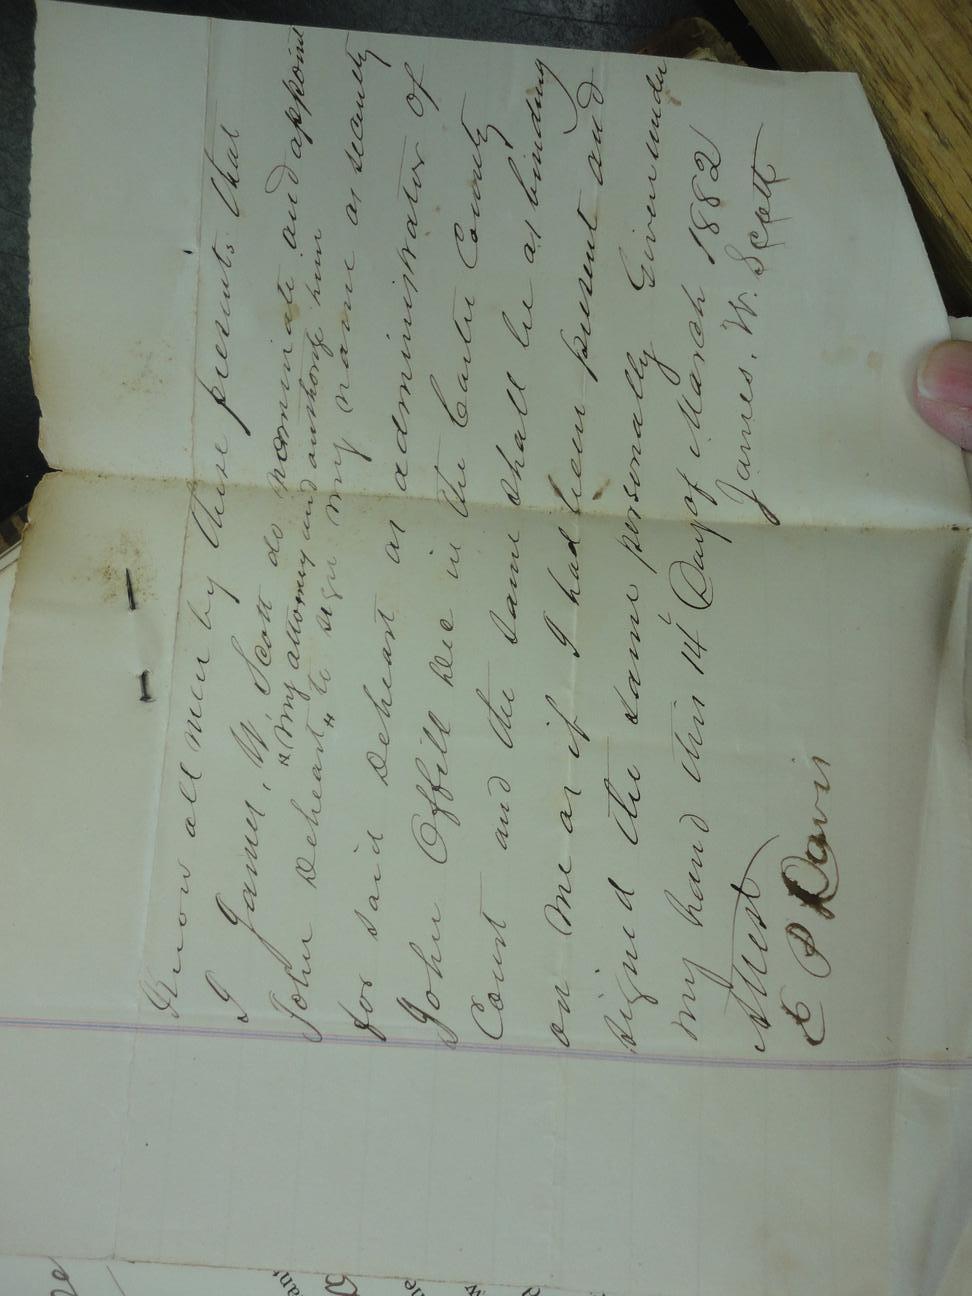 Know all men by these presents that
I James, W. Scott do nominate and appoint
"my attorney and authorize him
John Deheart" to sign my name as security
for said Deheart as administrator of
John Offill Dec in the Carter County
Court and the same shall be as binding
on me as if I had been present and
signed the same personally Given under
my hand this 14 Day of March 1882
James. W. Scott
Attest
E P Davis